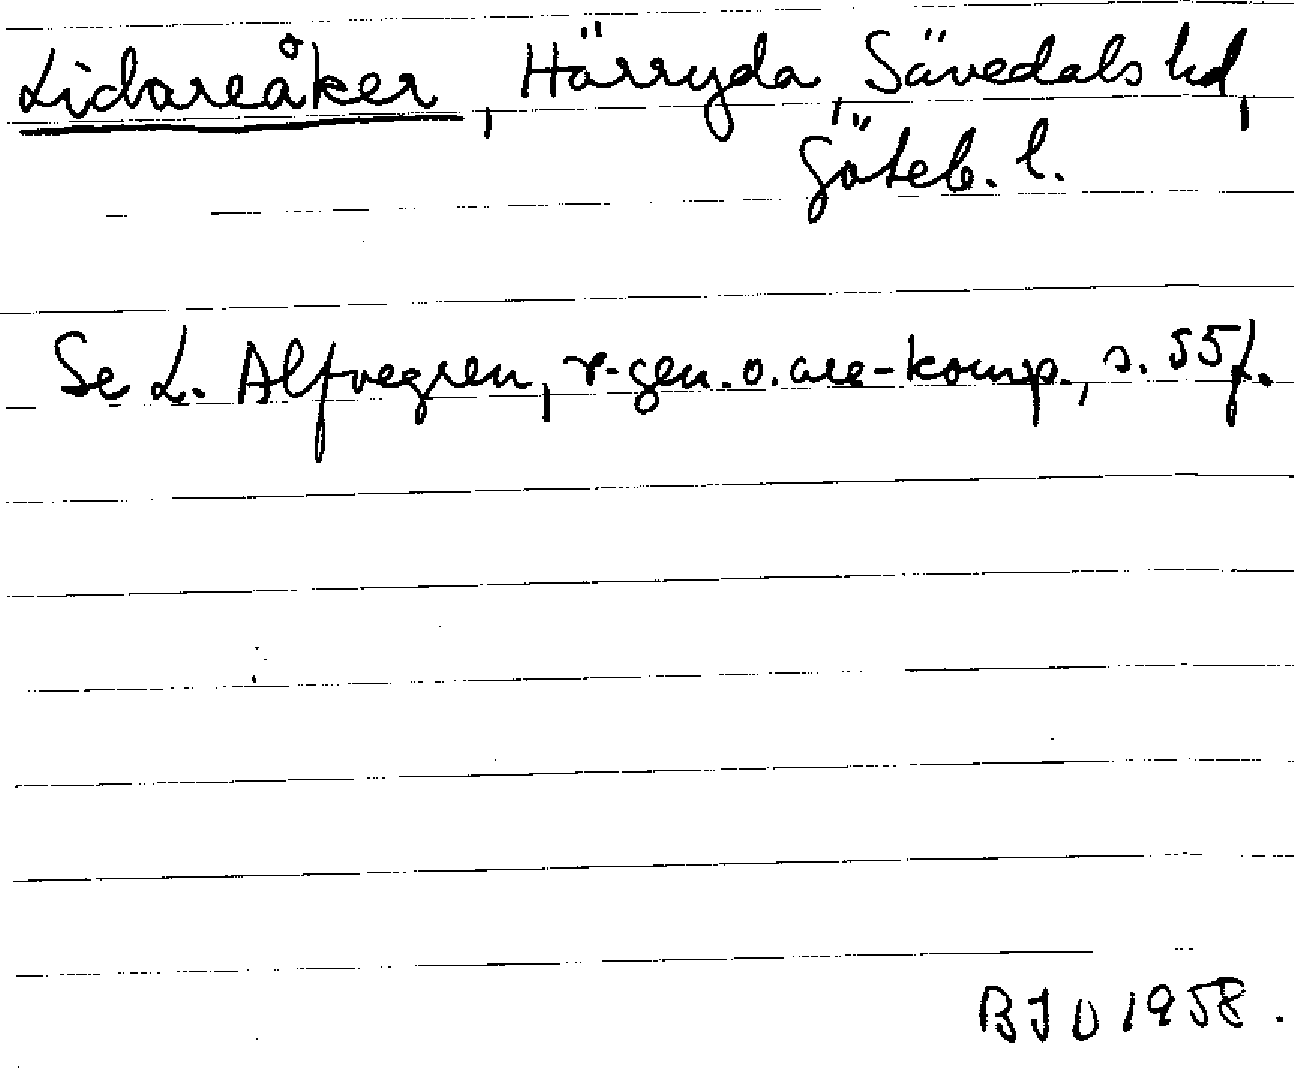 Lidareåker, Härryda, Sävedals hd,
Göteb. l.
Se L. Alfvegren, r-gen. o. are-komp., s. 55 f.
BJU 1958.